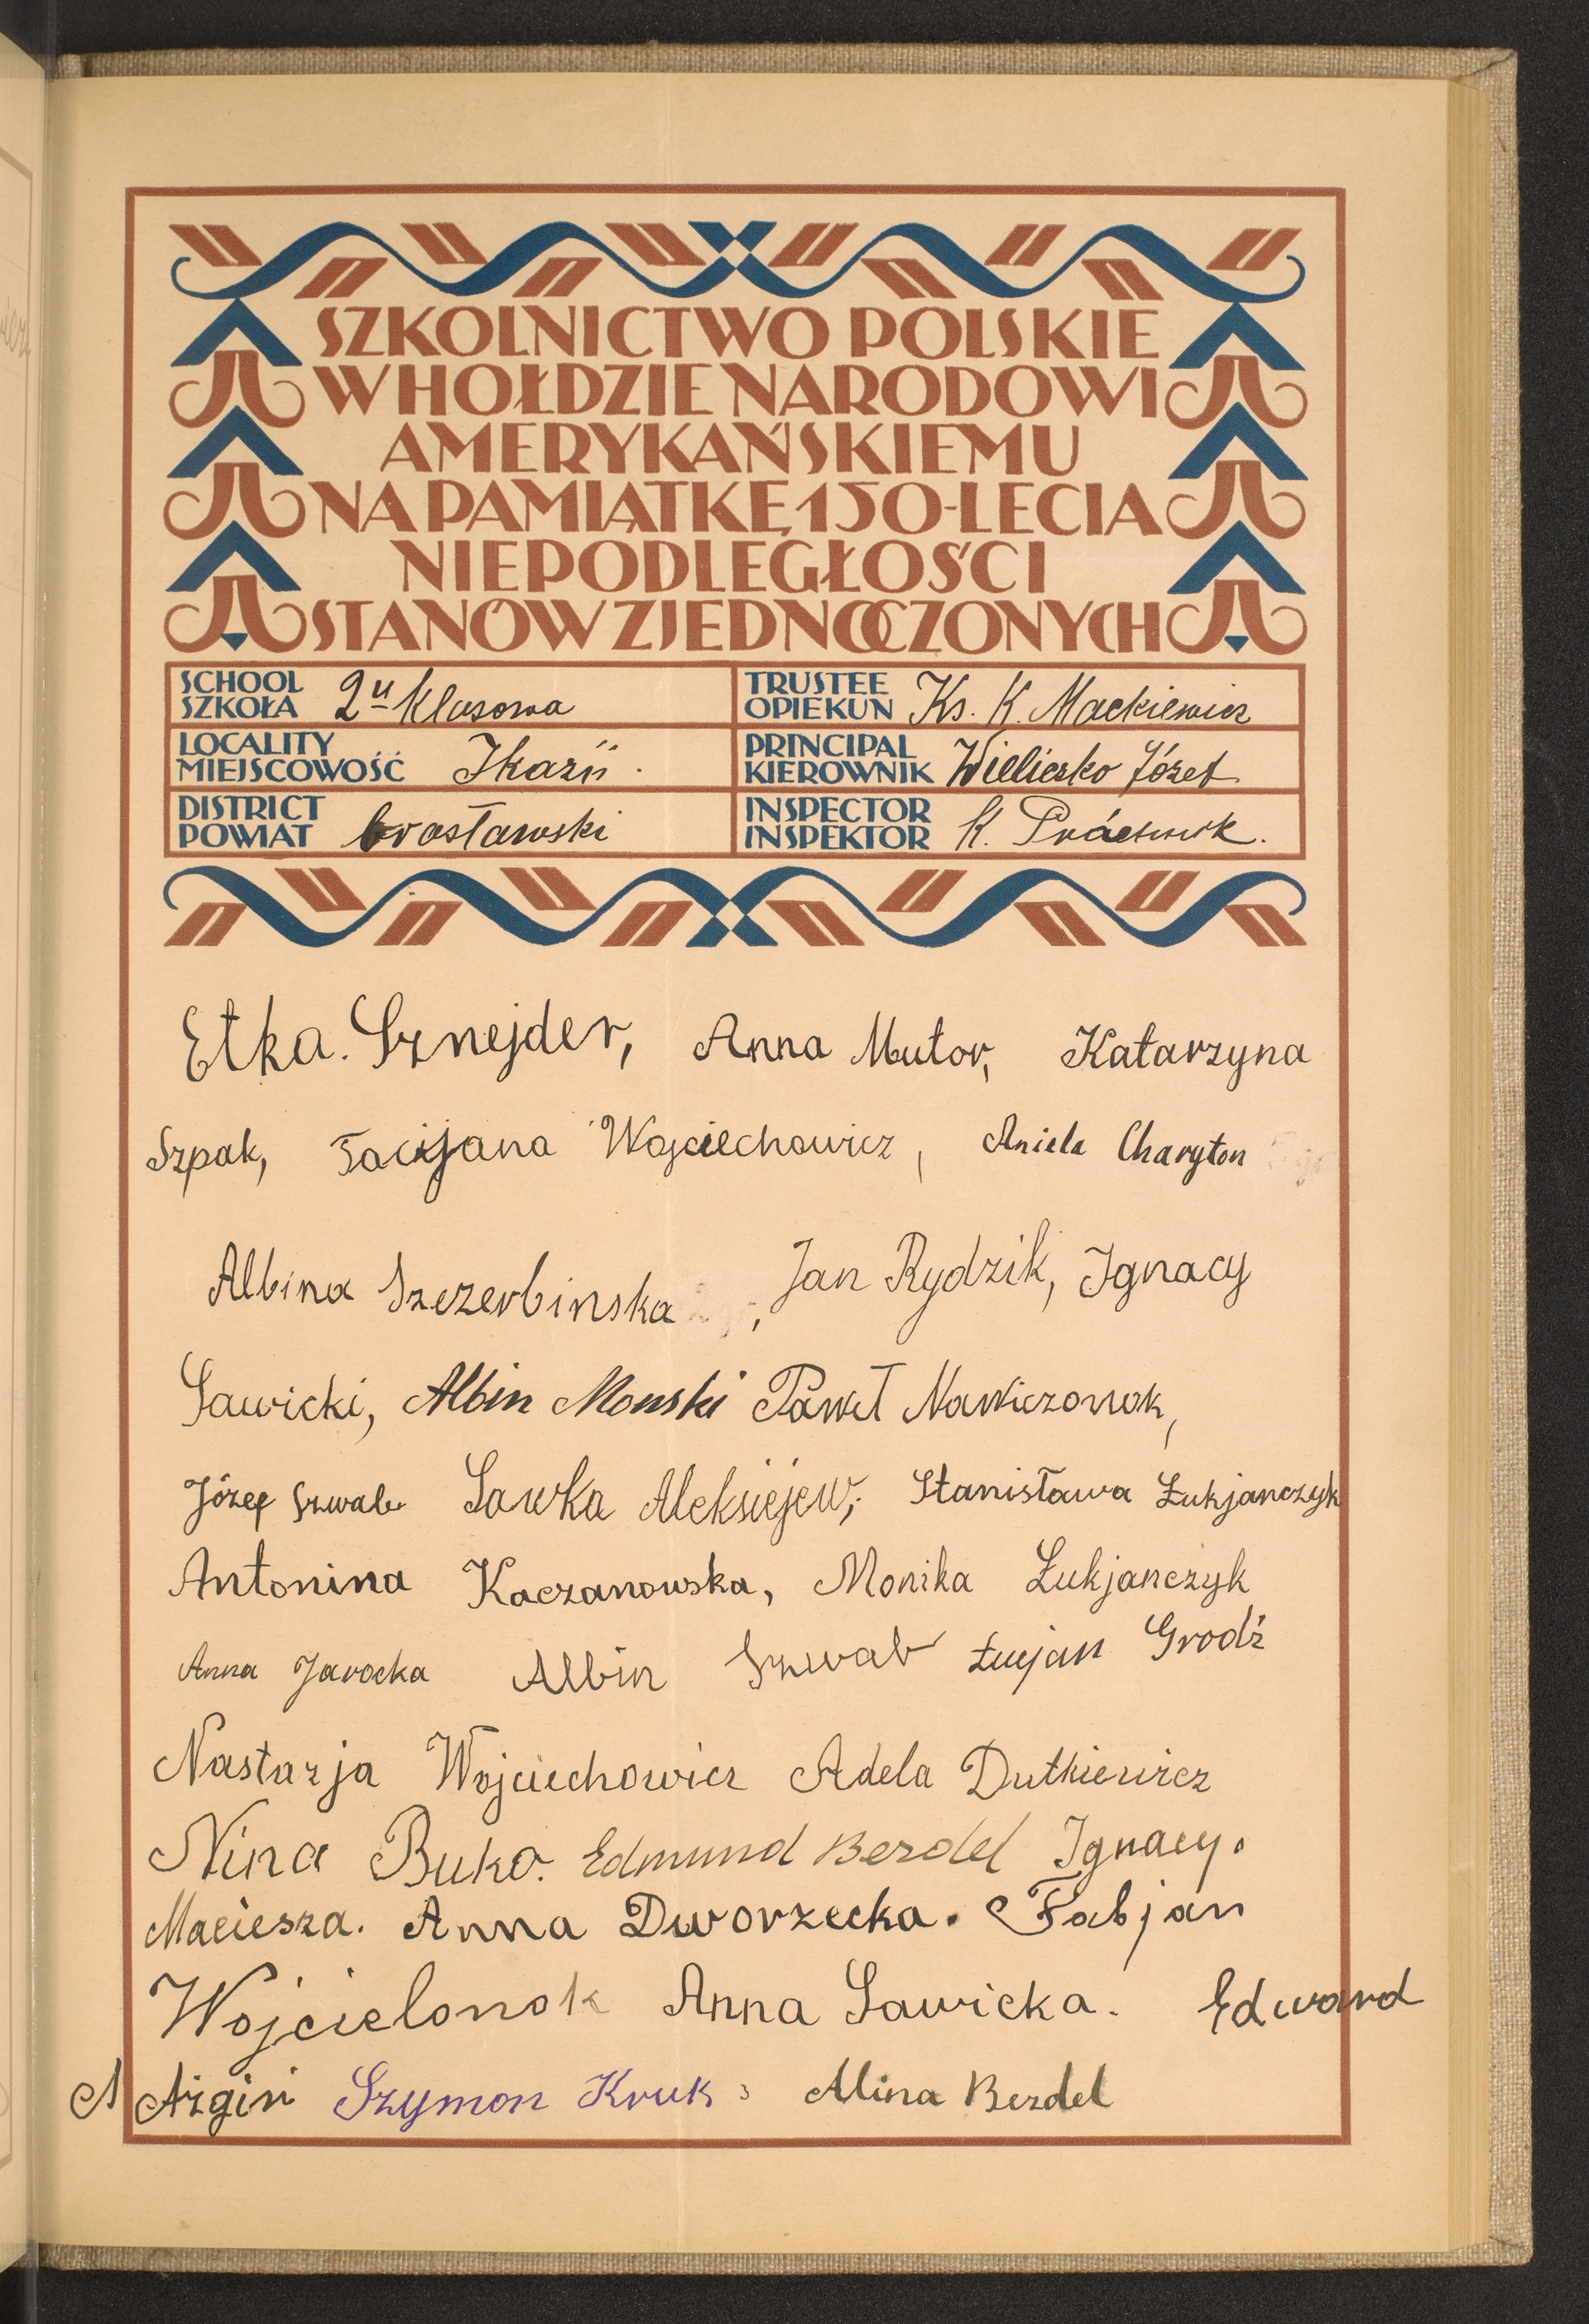 SZKOLNICTWO POLSKIE
W HOŁDZIE NARODOWI
AMERYKAŃSKIEMU
NA PAMIĄTKĘ 150-LECIA
NIEPODLEGŁOŚCI
STANÓW ZJEDNOCZONYCH
SCHOOL
SZKOŁA 2u Klasowa
TRUSTEE
OPIEKUN Ks. K. Mackiewicz
LOCALITY
MIEJSCOWOŚĆ Ikaźń.
PRINCIPAL
KIEROWNIK Wieliczko Józef
DISTRICT
POWIAT brasławski
INSPECTOR
INSPEKTOR K.
Etka. Sznejder, Anna Mutor, Katarzyna
Szpak, Tacijana Wojciechowicz, Aniela Charyton
Albina Szczerbinska, Jan Rydzik, Ignacy
Sawicki, Albin Monski Paweł Nawiczonok,
Józef Szwab Sawka Aleksiejew, Stanisława Łukjanczyk
Antonina Kaczanowska, Monika Łukjanczyk
Anna Jarocka Albin Szwab Łucjan Grodź
Nastazja Wojciechowicz Adela Dutkiewicz
Nina Buko. Edmund Bezdel Ignacy.
Maciesza. Anna Dworzecka. Fabjan
Wojcielonok Anna Sawicka. Edward
A Ażgin Szymon Kruk Alina Bezdel